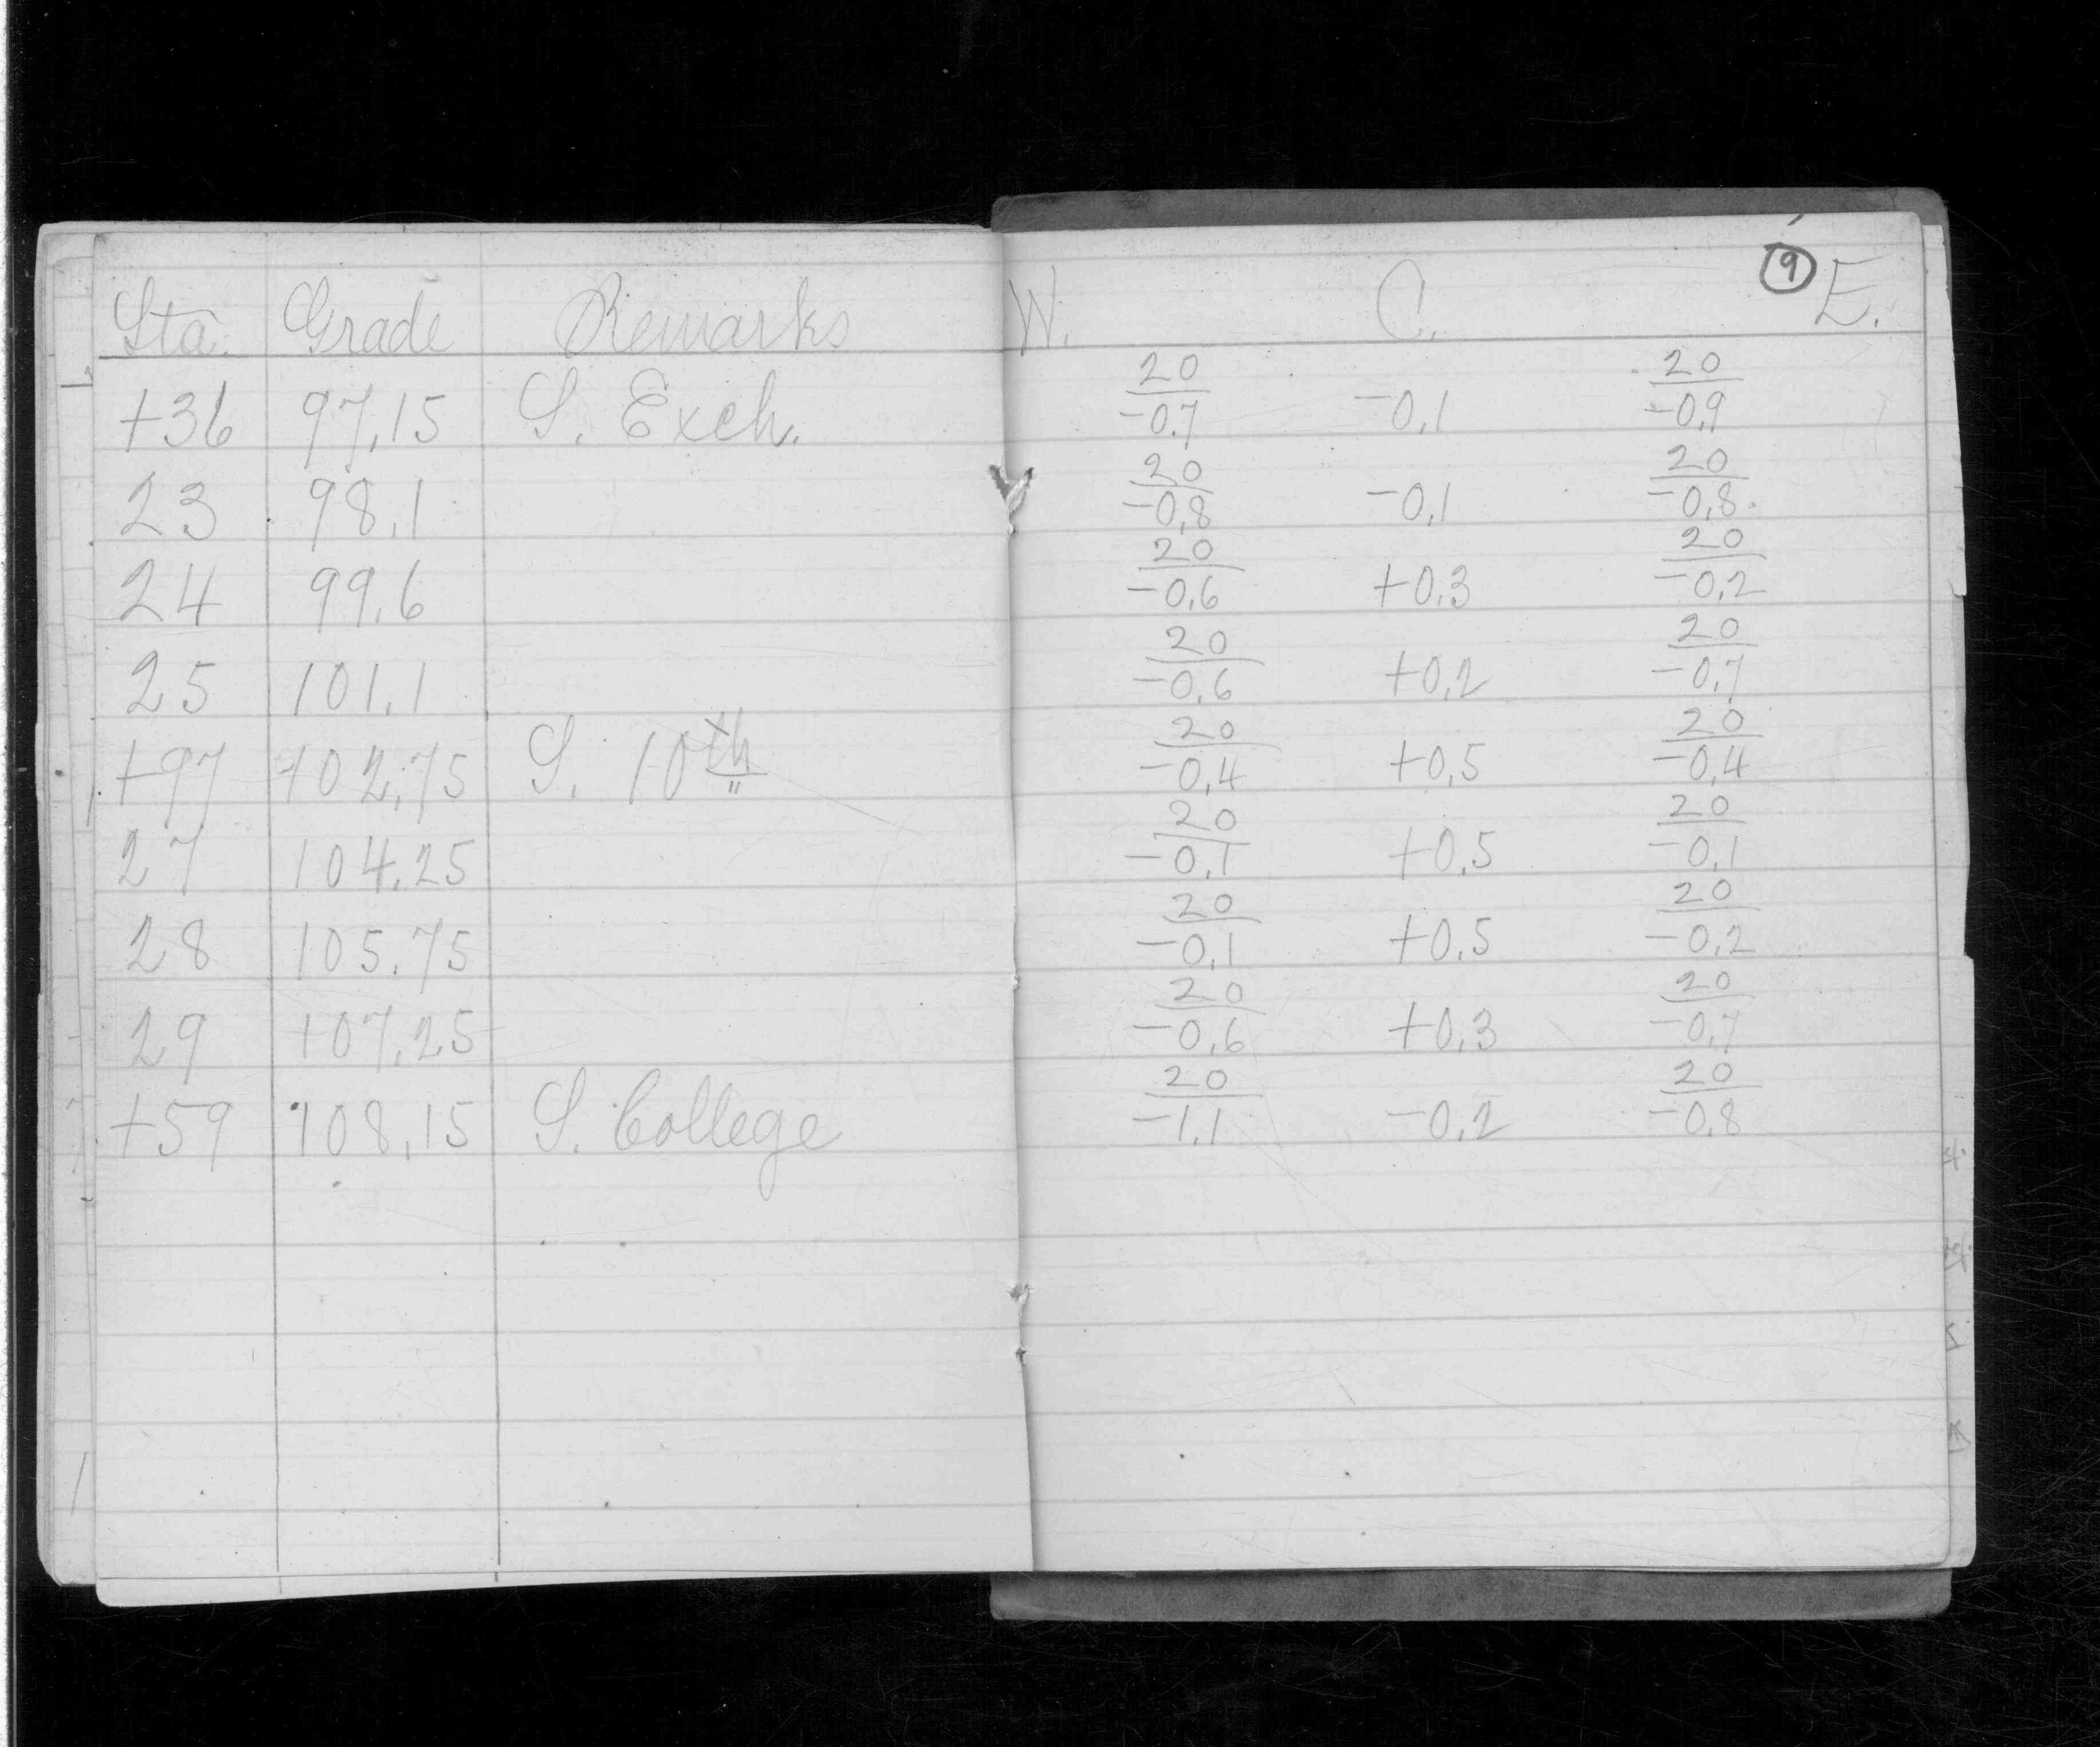 Sta. Grade Remarks W. C. 9 E.
+36 97.15 S. Exch. 20/-0.7 -0.1 20/-0.9
23 98.1 20/-0.8 -0.1 20/-0.8
24 99.6 20/-0.6 +0.3 20/-0.2
25 101.1 20/-0.6 +0.2 20/-0.7
+97 102.75 S. 10th 20/-0.4 +0.5 20/-0.4
27 104.25 20/-0.1 +0.5 20/-0.1
28 105.75 20/-0.1 +0.5 20/-0.2
29 107.25 20/-0.6 +0.3 20/-0.7
+59 108.15 S. College 20/-1.1 -0.2 20/-0.8